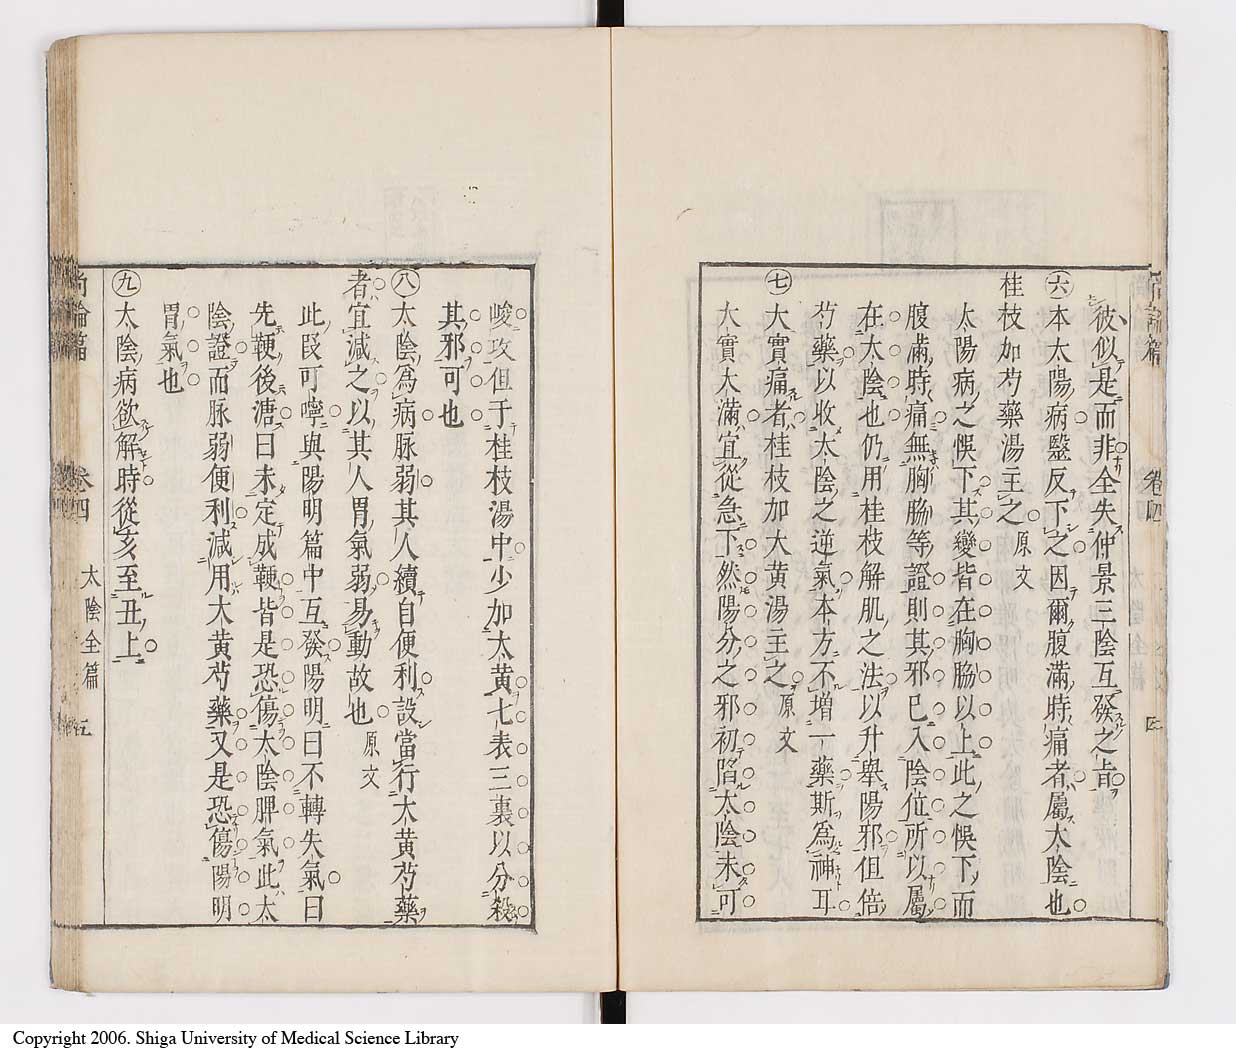 彼似是而非全失仲景三陰互發之旨
㊅本太陽病毉反下之因爾腹滿時痛者屬太陰也
桂枝加芍藥湯主之 原文
太陽病之悞下其變皆在胸脇以上此之悞下而
腹滿時痛無胸脇等證則其邪已入陰位所以屬
在太陰也仍用桂枝解肌之法以升舉陽邪但倍
芍藥以收太陰之逆氣本方不增一藥斯為神耳
㊆大實痛者桂枝加大黄湯主之 原文
大實大滿宜從急下然陽分之邪初陷太陰未可
峻攻但于桂枝湯中少加大黄七表三裏以分殺
其邪可也
㊇太陰為病脉弱其人續自便利設當行大黄芍藥
者宜減之以其人胃氣弱易動故也 原文
此段可嚀與陽明篇中互發陽明曰不轉失氣曰
先鞕後溏曰未定成鞕皆是恐傷太陰脾氣此太
陰證而脉弱便利減用大黄芍藥又是恐傷陽明
胃氣也
㊈太陰病欲解時從亥至丑上
尚論篇 卷四 太陰全篇 五
Copyright 2006. Shiga University of Medical Science Library